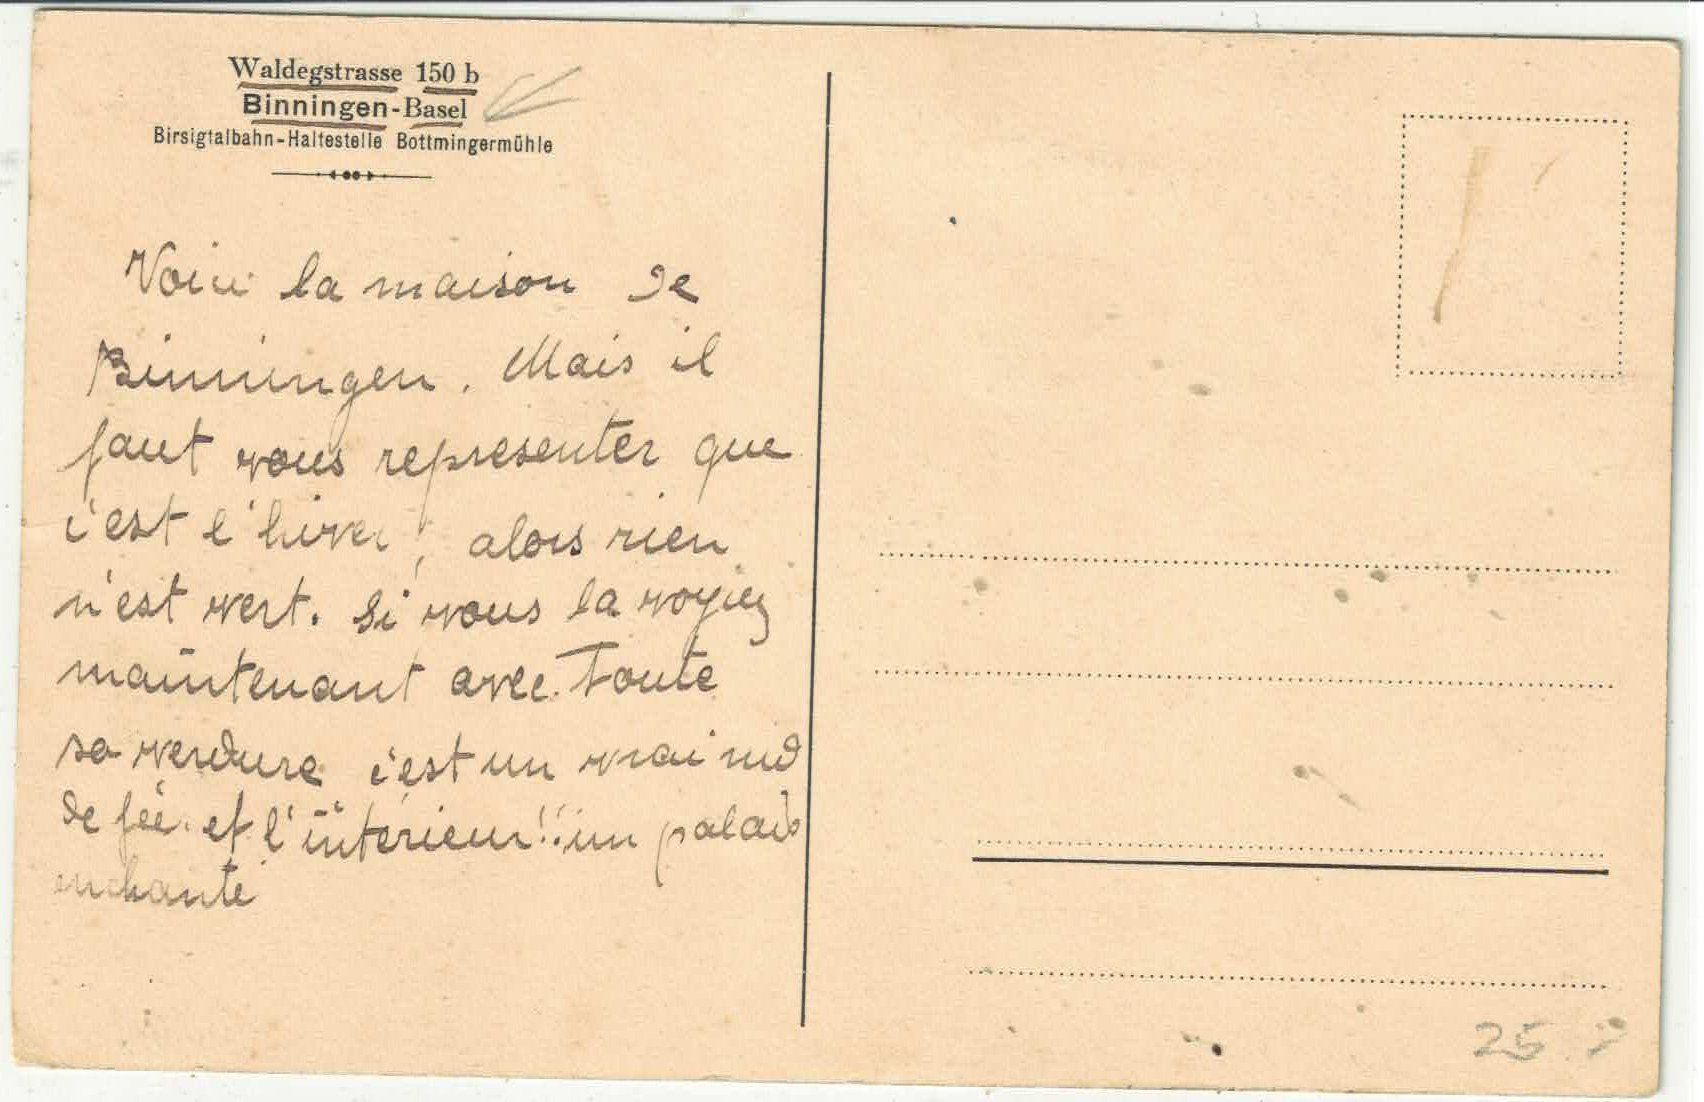 Waldegstrasse 150 b
Binningen-Basel
Birsigtalbahn-Haltestelle Bottmingermühle
Voici la maison de
Binningen. Mais il
faut vous representer que
c'est l'hiver, alors rien
n'est vert. Si vous la voyiez
maintenant avec toute
sa verdure c'est un vrai nid
de fée et l'intérieur!! un palais
enchanté
25.-